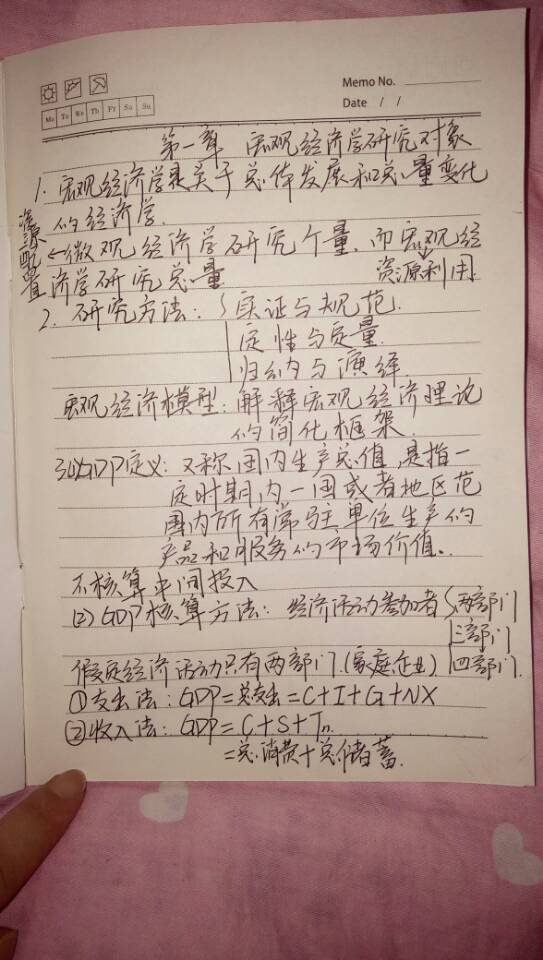 Memo No.
Mo Tu We Th Fr Sa Su
Date / /
第一章 宏观经济学研究对象
1. 宏观经济学是关于总体发展和总量变化
的经济学.
资源配置
←微观经济学研究个量.而宏观经
济学研究总量
资源利用
2. 研究方法: 实证与规范.
定性与定量.
归纳与演绎.
宏观经济模型: 解释宏观经济理论
的简化框架.
3.(1)GDP定义: 又称国内生产总值,是指一
定时期内一国或者地区范
围内所有常驻单位生产的
产品和服务的市场价值.
不核算中间投入
(2) GDP核算方法: 经济活动参加者 两部门
三部门
四部门
假定经济活动只有两部门.(家庭企业)
①支出法: GDP=总支出=C+I+G+NX
②收入法: GDP=C+S+Tn.
=总消费+总储蓄.